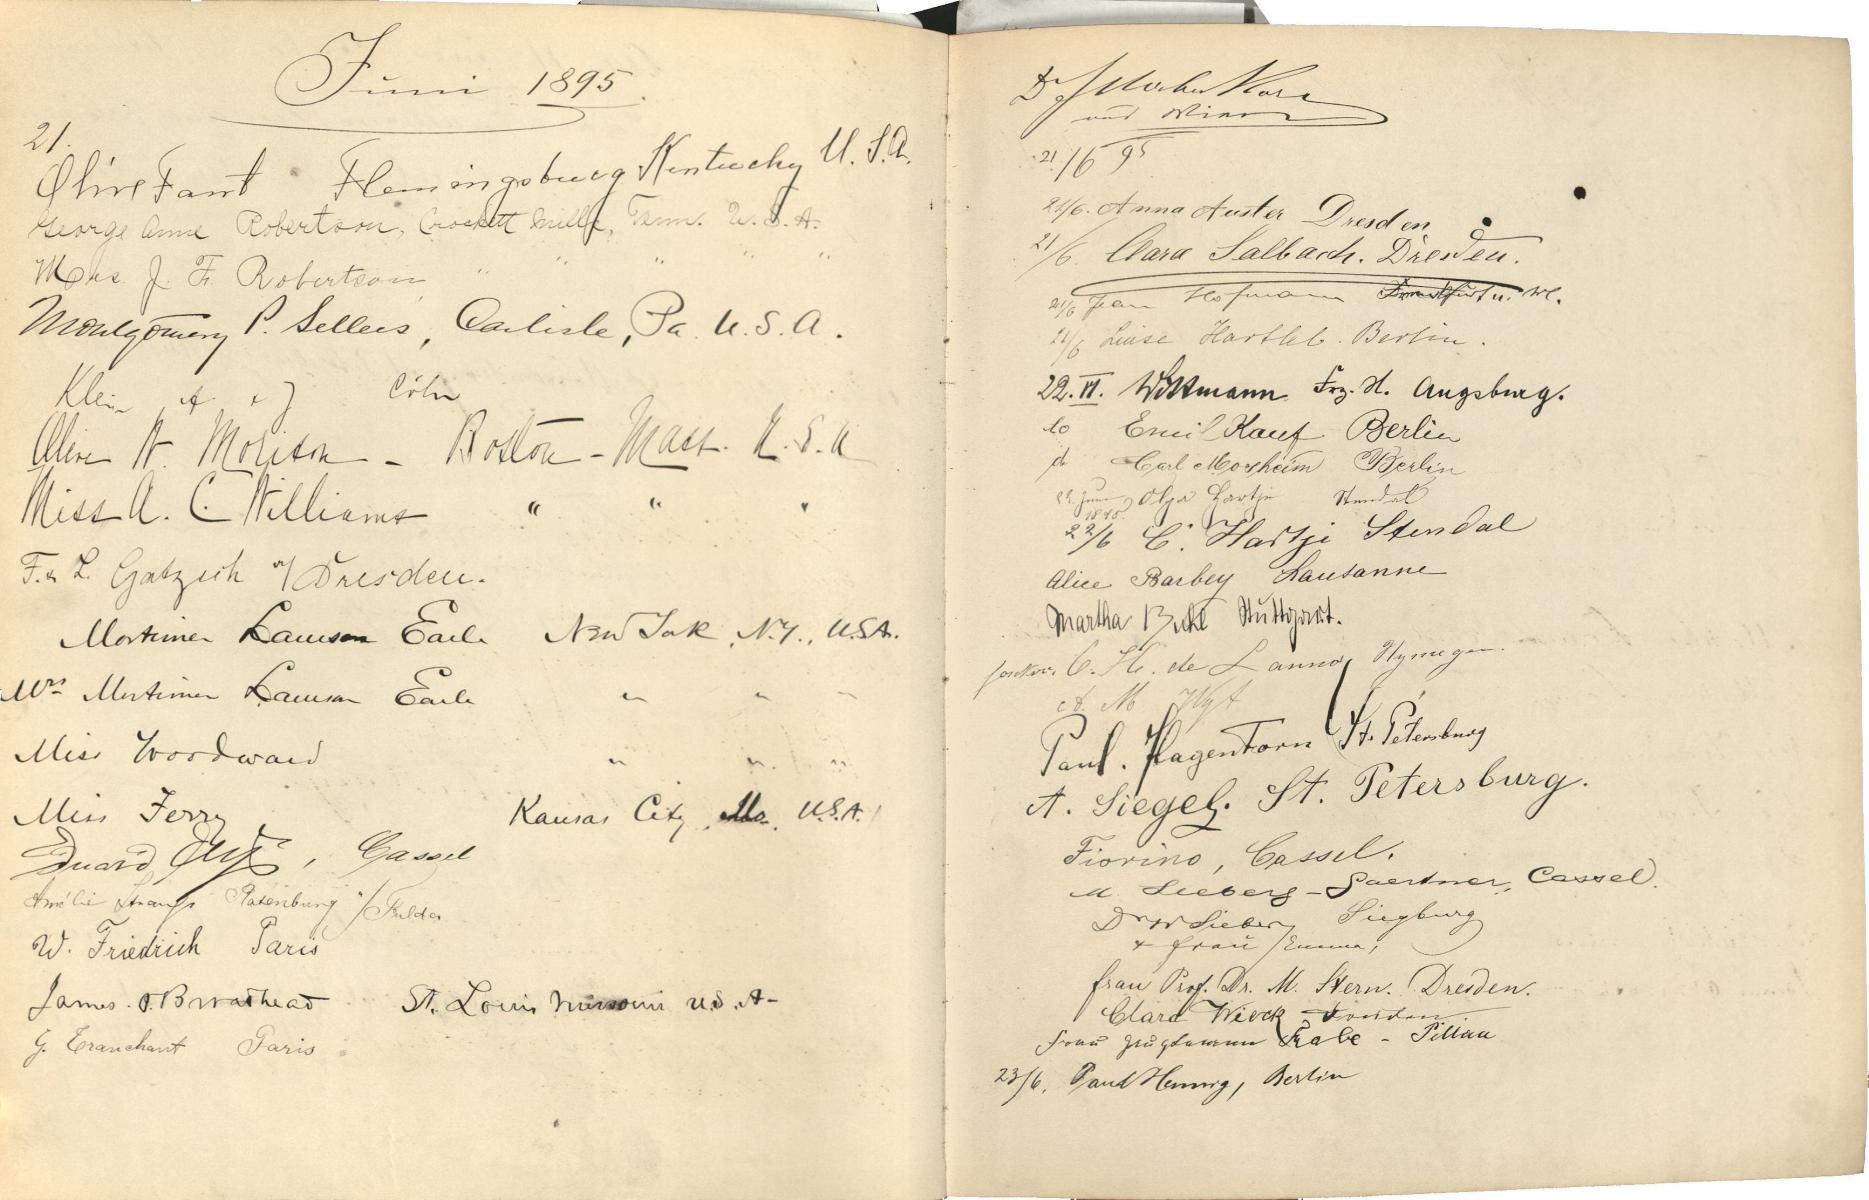 Juni 1895.
21.
Olive Fant Flemingsburg Kentucky U. S. A.
George Anne Robertson, Crockett Mills, Tenn. U. S. A.
Mrs. J. F. Robertson " " " "
Montgomery P. Sellers, Carlisle, Pa. U. S. A.
Klein Cöln
Alice W. Morison - Boston - Mass. U. S. A
Miss A. C. Williams " " "
F. & L. Dresden.
Mortimer Lamson Earle New York, N.Y., U.S.A.
Mrs Mortimer Lamson Earle " " "
Miss Woodward " " "
Miss Ferry Kansas City, Mo. U.S.A.
Eduard , Cassel
Amélie Rotenburg a/Fulda
W. Friedrich Paris
James O. Broadhead St. Louis Missouri U.S.A-
G. Tranchant Paris
Dr
und
21/6 95
21/6. Anna Auster Dresden
21/6. Clara Salbach. Dresden.
21/6 Jean Hofmann Frankfurt a. M.
21/6 Luise Berlin.
22. VI. Wittmann Frz. H. Augsburg.
do Emil Kauf Berlin
d Carl Morheim Berlin
22. Juni 1895. Olga Hartje Stendal
22/6 C. Hartje Stendal
Alice Barbey Lausanne
Martha Stuttgart.
C. H. de Lannoy Nymegen.
Paul. Hagentorn St. Petersburg
A. Siegel. St. Petersburg.
Fiorino, Cassel.
M. Lieberg-Gaertner, Cassel.
Dr W Lieber Siegburg
+ Frau Emma,
Frau Prof. Dr. M. Stern. Dresden.
Clara Wieck
Frau Rabe - Pillau
23/6. Paul Hennig, Berlin